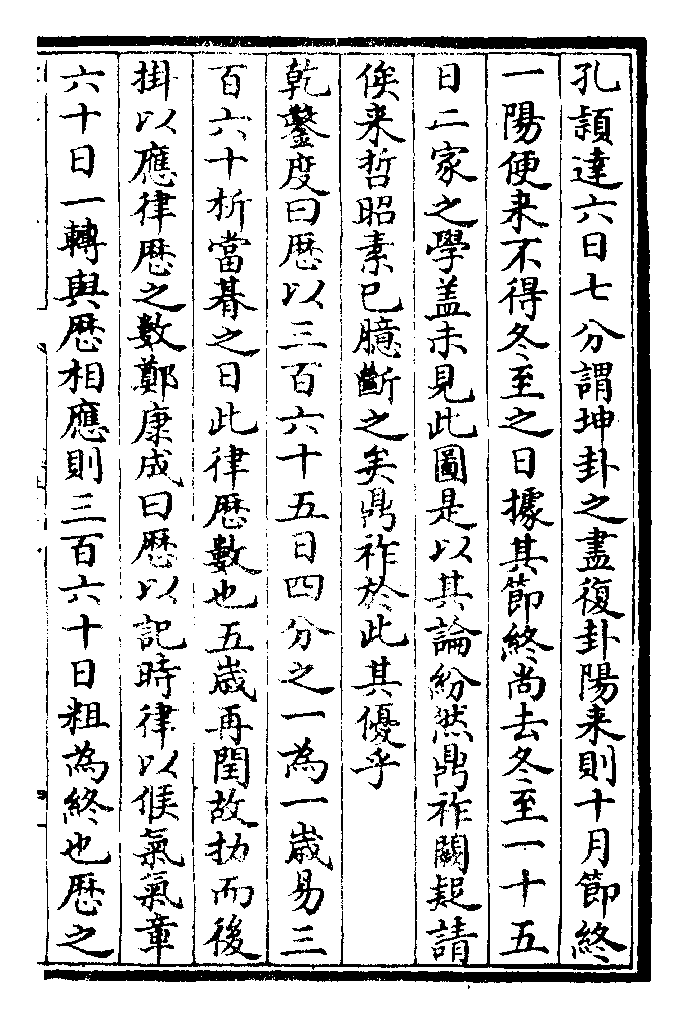 孔頴達六日七分謂坤卦之盡復卦陽来則十月節終
一陽便来不得冬至之日據其節終尚去冬至一十五
日二家之學盖未見此圖是以其論紛然鼎祚闕疑請
俟来哲昭素已臆斷之矣鼎祚於此其優乎
乾鑿度曰厯以三百六十五日四分之一為一歳易三
百六十析當朞之日此律厯數也五歳再閏故扐而後
掛以應律厯之數鄭康成曰厯以記時律以候氣氣章
六十日一轉與厯相應則三百六十日粗為終也厯之